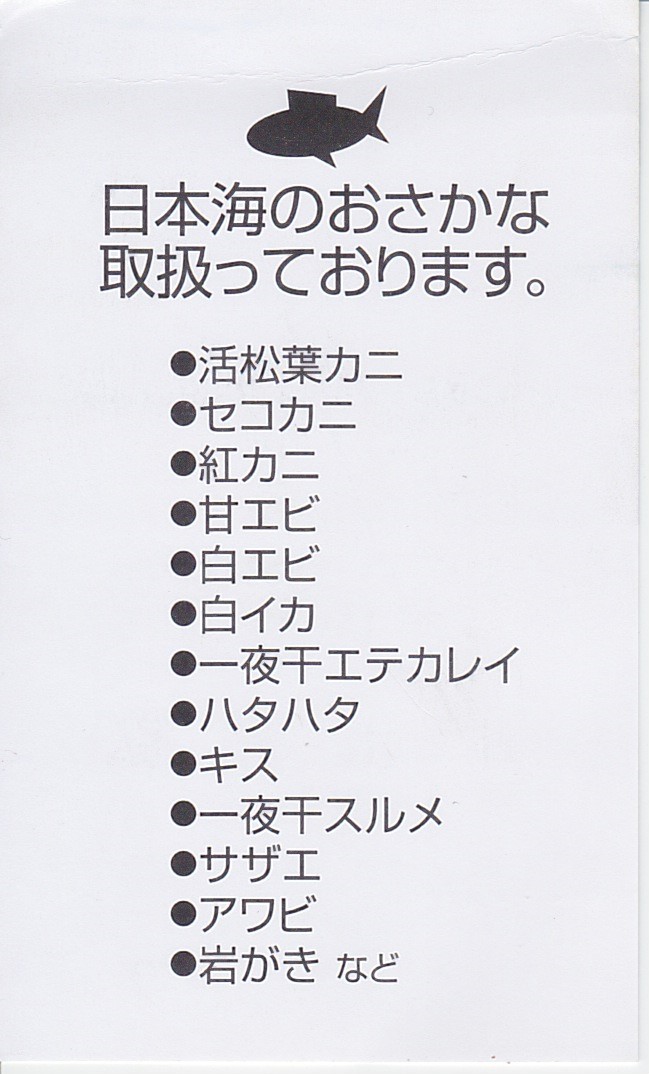 日本海のおさかな
取扱っております。
●活松葉カニ
●セコカニ
●紅カニ
●甘エビ
●白エビ
●白イカ
●一夜干エテカレイ
●ハタハタ
●キス
●一夜干スルメ
●サザエ
●アワビ
●岩がき など